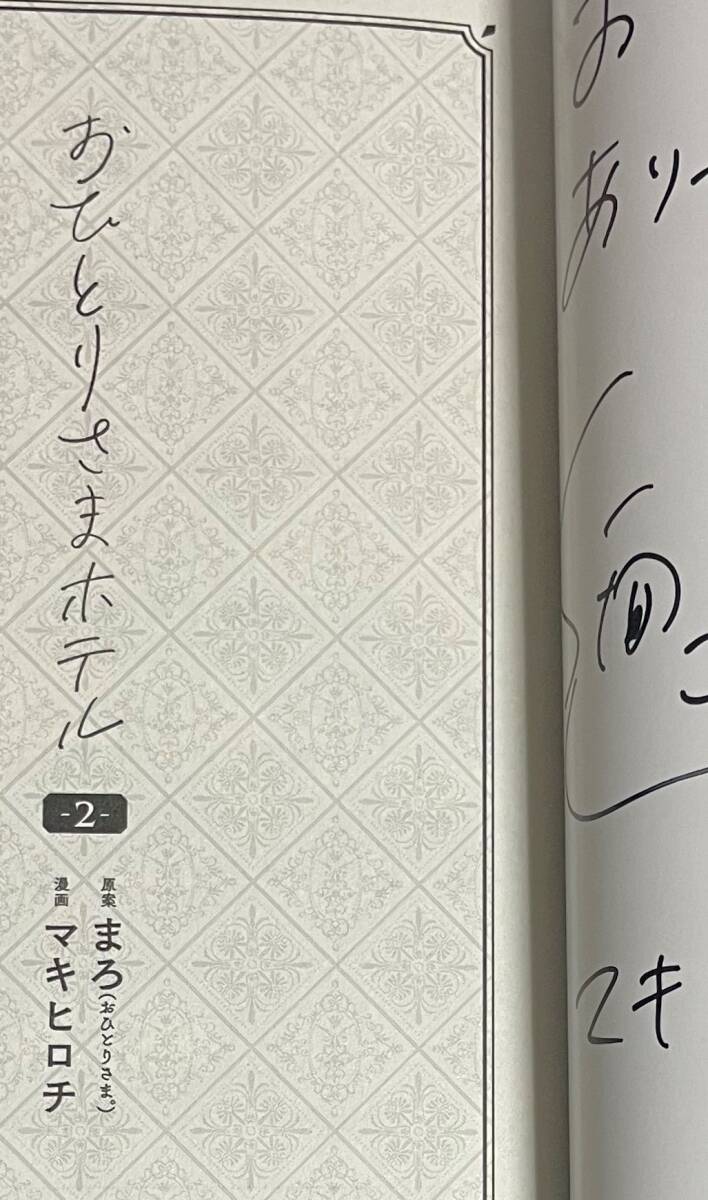 お
あり
マキ
おひとりさまホテル
-2-
原案 まろ(おひとりさま。)
漫画 マキヒロチ